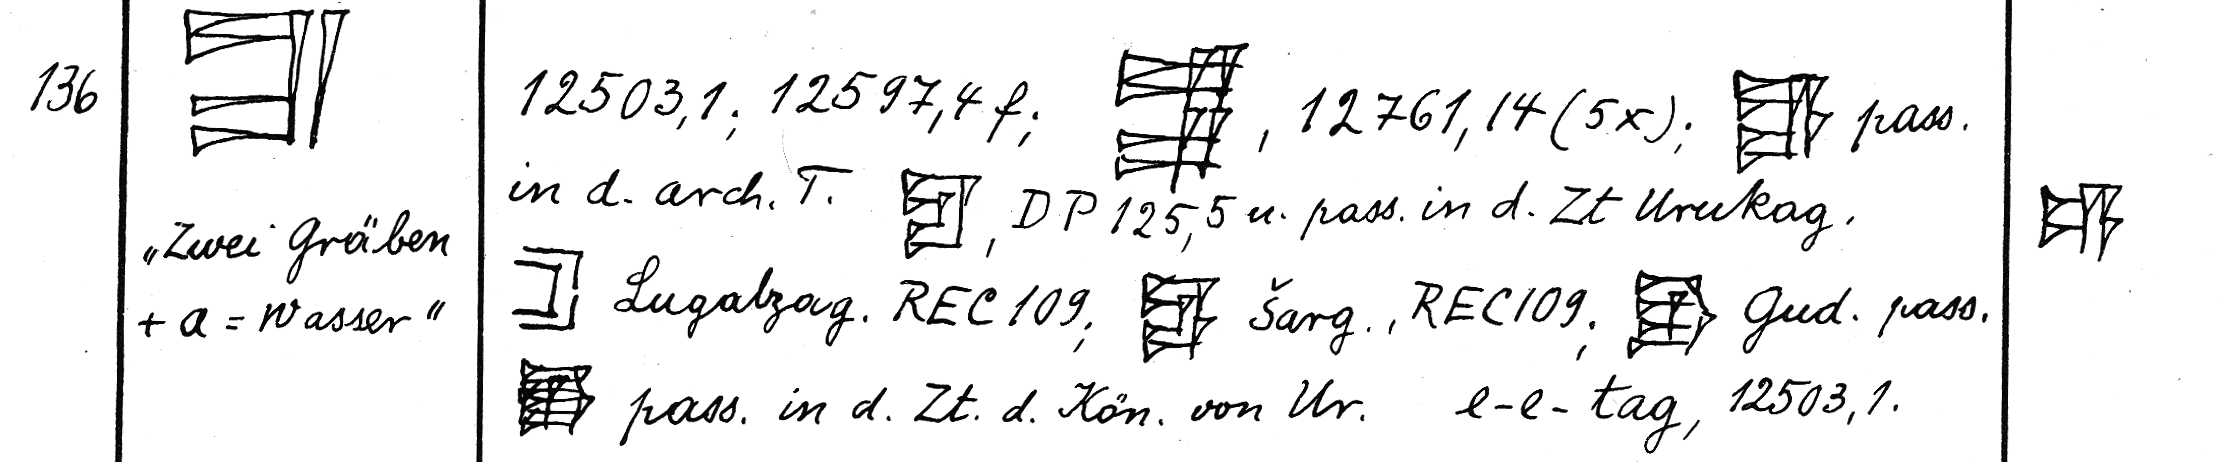 136
„Zwei Gräben
+ a = Wasser“
12503,1; 12597,4 f; , 12761,14 (5x); pass.
in d. arch. T. , DP 125,5 u. pass. in d. Zt Urukag.
Lugalzag. REC 109; Šarg., REC 109; Gud. pass.
pass. in d. Zt. d. Kön. von Ur. e-e-tag, 12503,1.